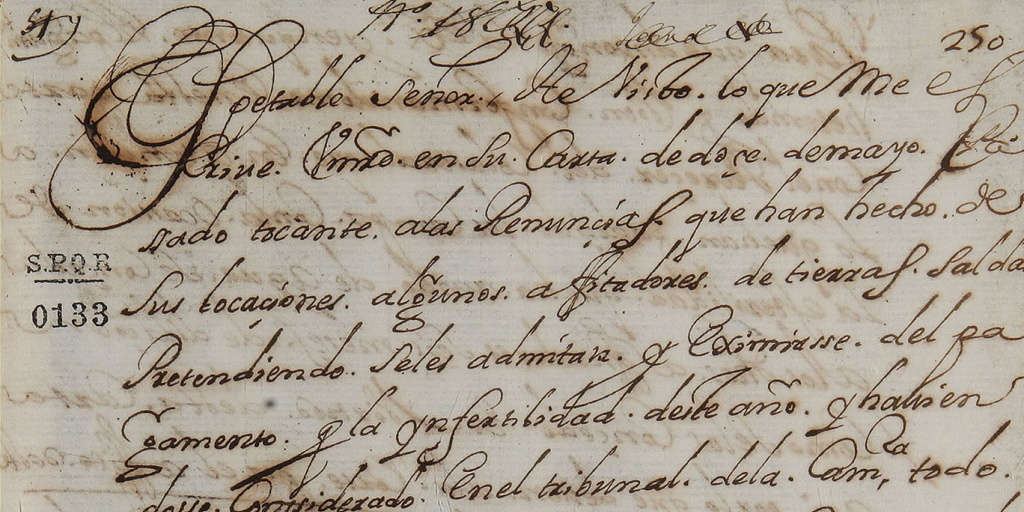 250
Spetable Señor. He Visto. lo que Me es
Crive. Vmrd. en su. Carta. de doçe. demayo.
ssado tocante. alas Renunçias. que han hecho. de
S.P.Q.R
0133
sus locaçiones. algunos. affitadores. de tierras. Salda
Pretendiendo. Seles admitan. y Eximirsse. del pa
gamento. p la ynfertilidad. deste año. y havien
dosse. Considerado. Enel tribunal. dela. Camra, todo.